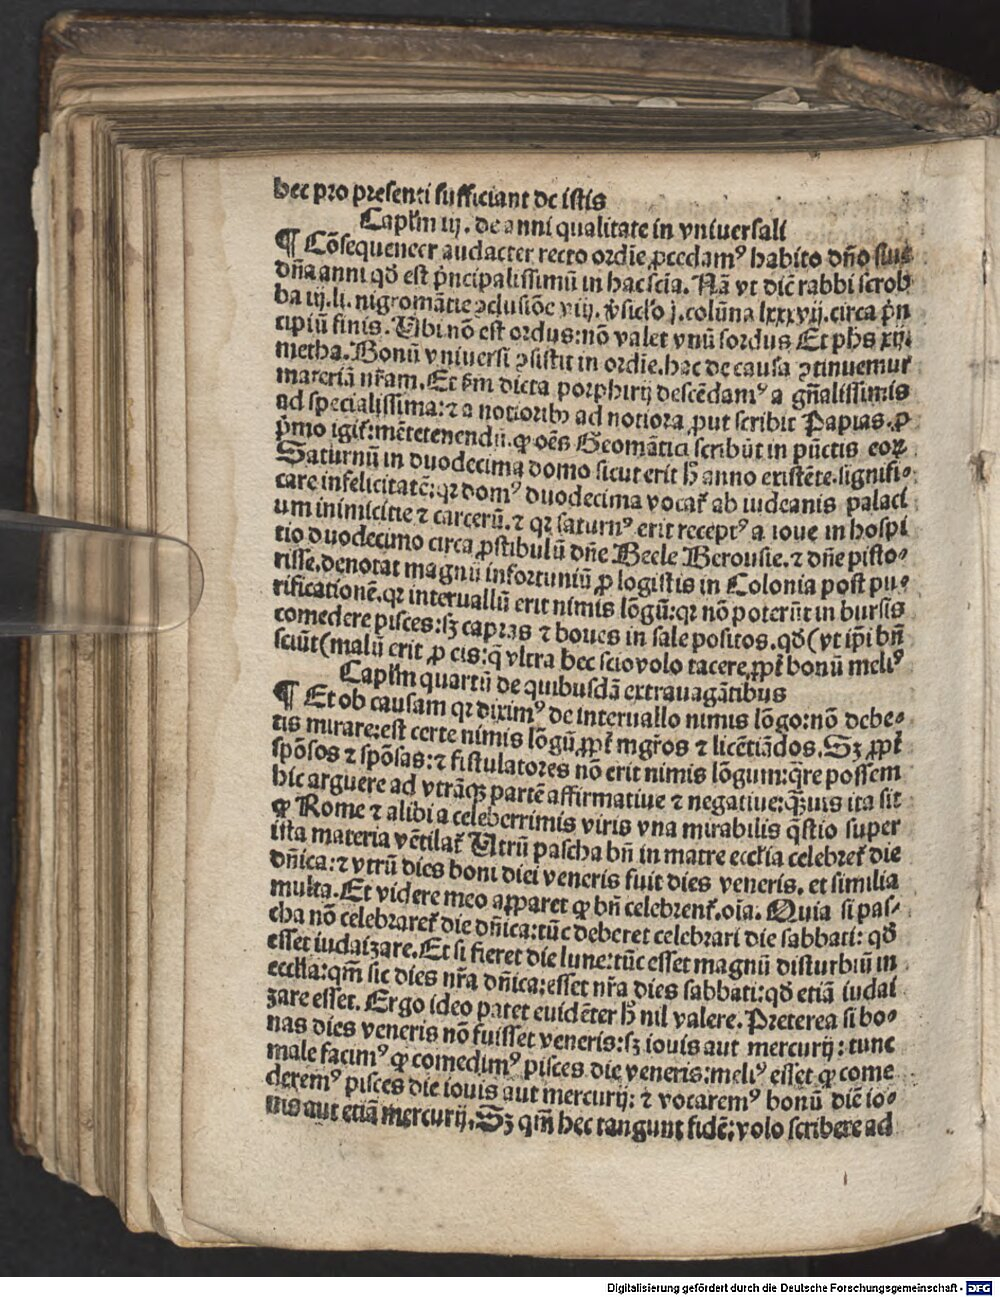 hec pro presenti sufficiant de istis
Caplm iij. de anni qualitate in vniuersali
¶ Cōsequenter audacter recto ordīe ꝓcedamꝰ habito dn̄o siue
dn̄a anni qđ est pͥncipalissimū in hac scīa. Nā vt dic̄ rabbi scrob
ba iij. li. nigromātie ꝯclusiōe viij. v̓siclo j. colūna lxxxvij. circa pͥn
cipiū finis. Ubi nō est ordus: nō valet vnū sordus Et ph̄s xij.
metha. Bonū vniuersi ꝯsistit in ordīe. hac de causa ꝯtinuemur
materiā nr̄am. Et s̄m dicta porphirij descēdamꝰ a gn̄alissimis
ad specialissima: ⁊ a notioribꝰ ad notiora ꝓut scribit Papias. ꝓ
pͥmo igit̄: mēte tenendū. ꝙ oēs Geomātici scribūt in pūctis eoꝝ
Saturnū in duodecima domo sicut erit h̄ anno existēte. signifi⸗
care infelicitatē: qꝛ domꝰ duodecima vocat̄ ab iudeanis palaci
um inimicitie ⁊ carcerū. ⁊ qꝛ saturnꝰ erit receptꝰ a ioue in hospi
tio duodecimo circa ꝓstibulū dn̄e Beele Berousie. ⁊ dn̄e pisto⸗
risse. denotat magnū infortuniū ꝓ logistis in Colonia post pu⸗
rificationē. qꝛ interuallū erit nimis lōgū: qꝛ nō poterūt in bursis
comedere pisces: sꝫ capras ⁊ boues in sale positos. qđ (vt ip̄i bn̄
sciūt (malū erit ꝓ eis: q̄ vltra hec scio volo tacere ꝓpt̄ bonū meliꝰ
Caplm quartū de quibusdā extrauagātibus
¶ Et ob causam qꝛ diximꝰ de interuallo nimis lōgo: nō debe⸗
tis mirare: est certe nimis lōgū ꝓpt̄ mgr̄os ⁊ licētiādos. Sꝫ ꝓpt̄
spōsos ⁊ spōsas: ⁊ fistulatores nō erit nimis lōgum: q̄re possem
hic arguere ad vtrāqꝫ partē affirmatiue ⁊ negatiue: qꝫuis ita sit
ꝙ Rome ⁊ alibi a celeberrimis viris vna mirabilis q̄stio super
ista materia vētilat̄ Utrū pascha bn̄ in matre eccl̄ia celebret̄ die
dn̄ica: ⁊ vtrū dies boni diei veneris fuit dies veneris. et similia
multa. Et videre meo apparet ꝙ bn̄ celebrent̄. oīa. Quia si pas⸗
cha nō celebraret̄ die dn̄ica: tūc deberet celebrari die sabbati: qđ
esset iudaizare. Et si fieret die lune: tūc esset magnū disturbiū in
eccl̄ia: qm̄ sic dies nr̄a dn̄ica: esset nr̄a dies sabbati: qđ etiā iudai
zare esset. Ergo ideo patet euidēter h̄ nil valere. Preterea si bo⸗
nas dies veneris nō fuisset veneris: sꝫ iouis aut mercurij: tunc
male facimꝰ ꝙ comedimꝰ pisces die veneris: meliꝰ esset ꝙ come
deremꝰ pisces die iouis aut mercurij: ⁊ vocaremꝰ bonū diē io⸗
uis aut etiā mercurij. Sꝫ qm̄ hec tangunt fidē: volo scribere ad
Digitalisierung gefördert durch die Deutsche Forschungsgemeinschaft - DFG